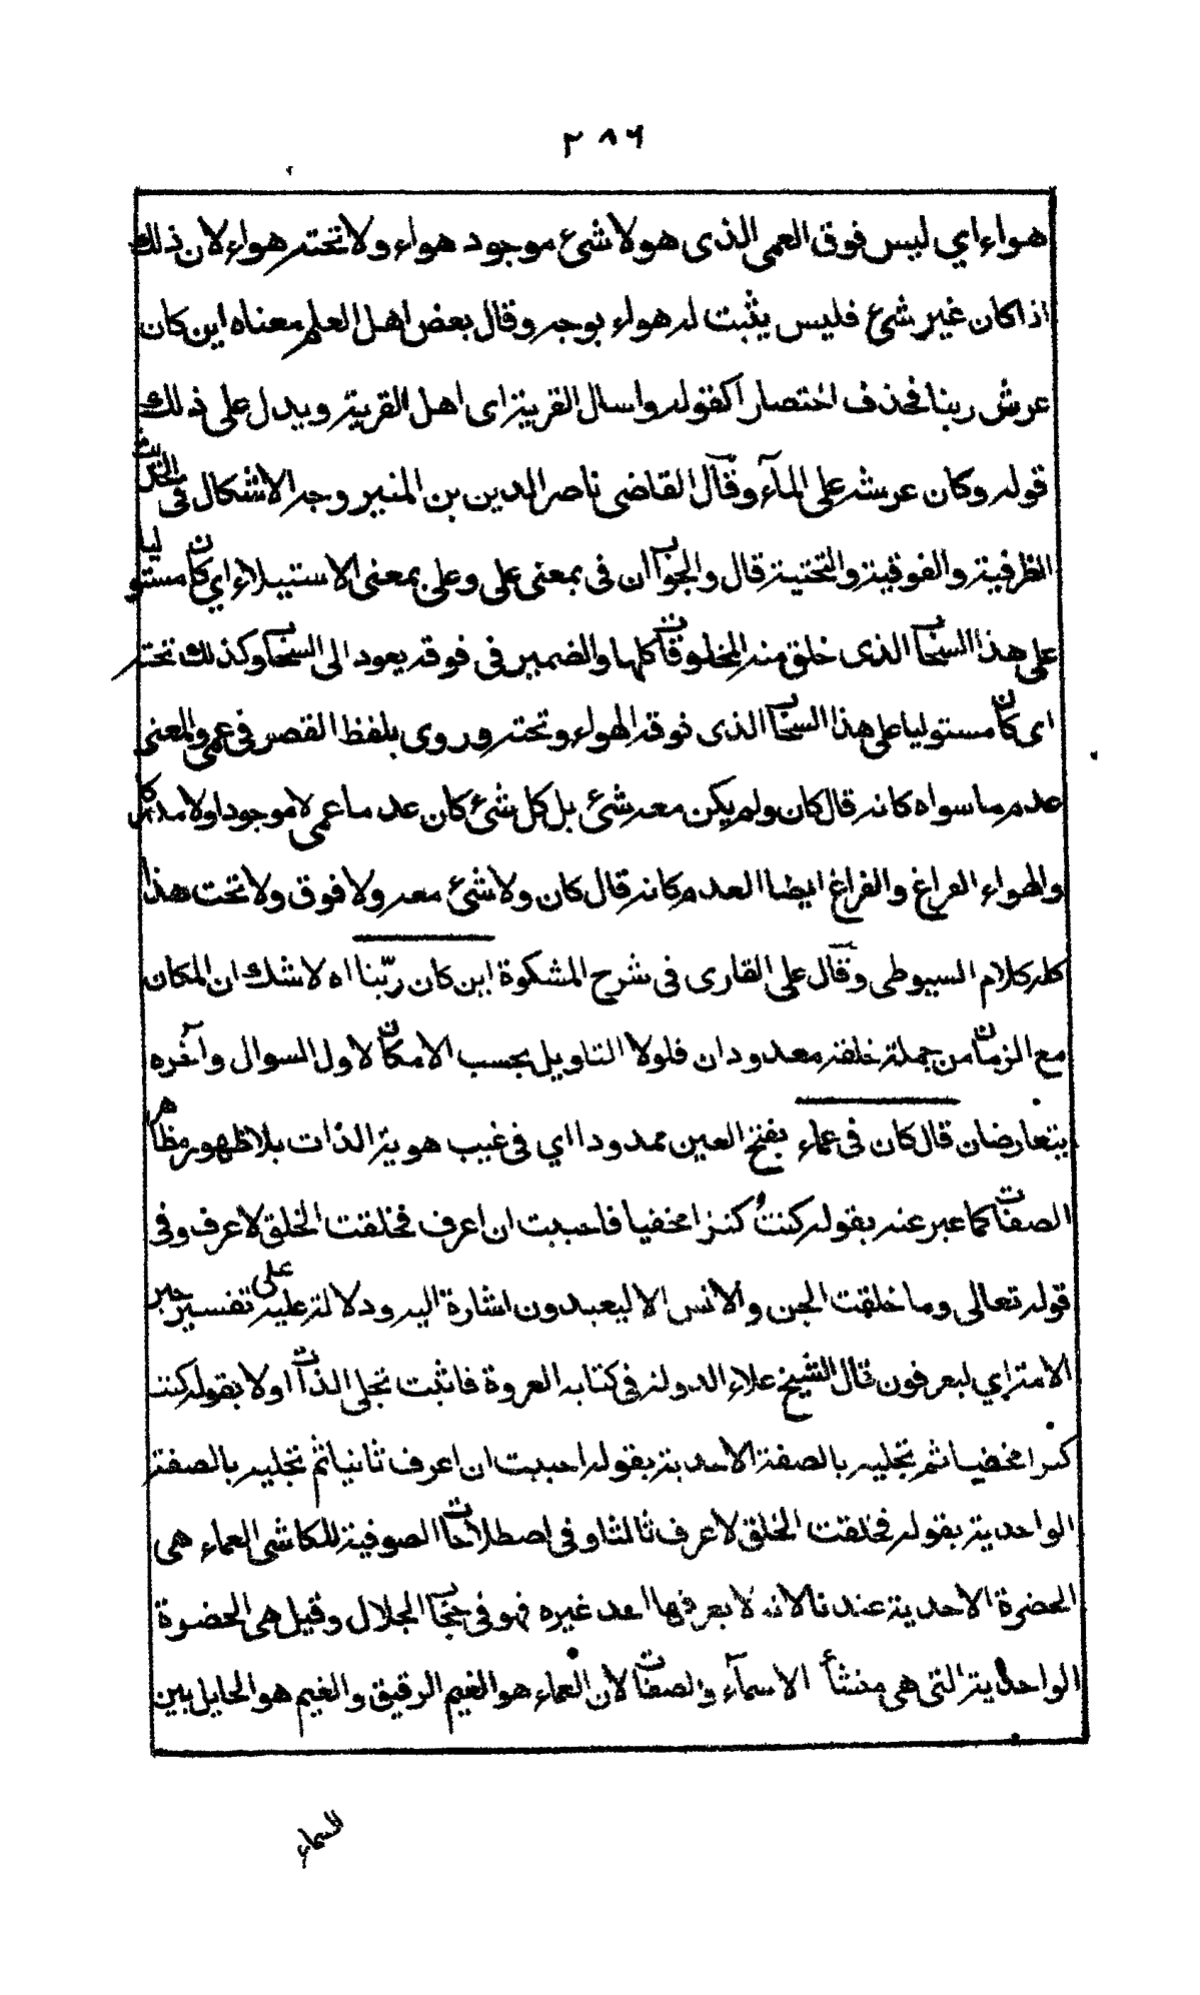 ٢٨٦
هواء اي ليس فوق العمى الذى هو لا شئ موجود هواء ولا تحته هواء لان ذلك
اذا كان غير شئ فليس يثبت له هواء بوجه وقال بعض اهل العلم معناه اين كان
عرش ربنا فحذف اختصارا كقوله واسال القرية اى اهل القرية ويدل على ذلك
قوله وكان عرشه على المآء وقال القاضى ناصر الدين بن المنير وجه الاشكال فى الحديث
الظرفية والفوقية والتحتية قال والجواب ان فى بمعنى على وعلى بمعنى الاستيلاء اي كان مستوليا
على هذا السحاب الذى خلق منه المخلوقات كلها والضمير فى فوقه يعود الى السحاب وكذلك تحته
اى كان مستوليا على هذا السحاب الذى فوقه الهواء وتحته وروى بلفظ القصر فى عمى والمعنى
عدم ما سواه كانه قال كان ولم يكن معه شئ بل كل شئ كان عدما عمى لا موجودا ولا مدركا
والهواء الفراغ والفراغ ايضا العدم كانه قال كان ولا شئ معه ولا فوق ولا تحت هذا
كله كلام السيوطى وقال على القارى فى شرح المشكوة اين كان ربّنا اه لا شك ان المكان
مع الزمان من جملة خلقه معدودان فلولا التاويل بحسب الامكان لاول السوال وآخره
يتعارضان قال كان فى عماء بفتح العين ممدودا اي فى غيب هوية الذات بلا ظهور مظاهر
الصفات كما عبر عنه بقوله كنتُ كنزا مخفيا فاحببت ان اعرف فخلقت الخلق لاعرف وفى
قوله تعالى وما خلقت الجن والانس الا ليعبدون اشارة اليه ودلالة عليه على تفسير حبر
الامة اي ليعرفون قال الشيخ علاء الدولة فى كتابه العروة فاثبت تجلى الذات اولا بقوله كنت
كنزا مخفيا ثم تجليه بالصفة الاحدية بقوله احببت ان اعرف ثانيا ثم تجليه بالصفة
الواحدية بقوله فخلقت الخلق لاعرف ثالثا وفى اصطلاحات الصوفية للكاشى العماء هى
الحضرة الاحدية عندنا لانه لا يعرفها احد غيره فهو فى حجاب الجلال وقيل هى الحضرة
الواحدية التى هى منشأ الاسمآء والصفات لان العماء هو الغيم الرقيق والغيم هو الحايل بين
السماء